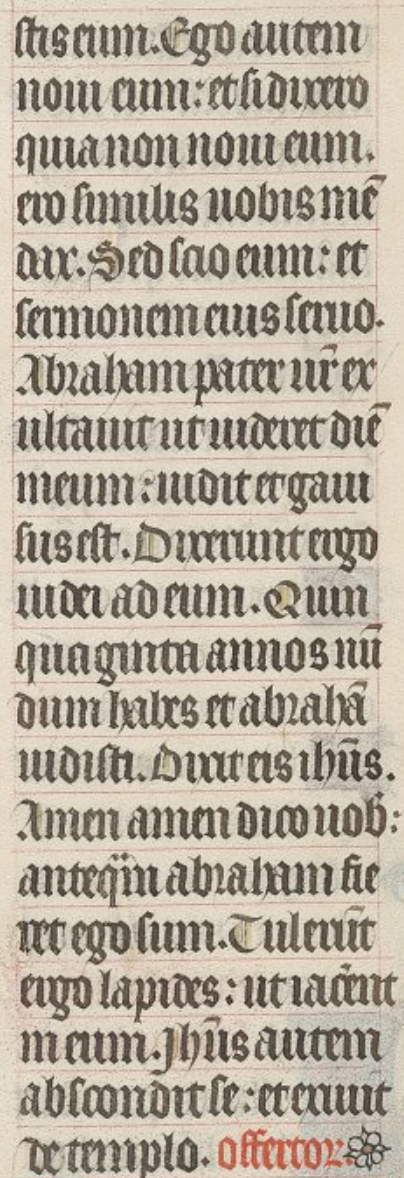 stis eum. Ego autem
noui eum: et si dixero
quia non noui eum.
ero similis uobis mē
dax. Sed scio eum: et
sermonem eius seruo.
Abraham pater ur̄ ex
ultauit ut uideret diē
meum: uidit et gaui
sus est. Dixerunt ergo
iudei ad eum. Quin
quaginta annos nū
dum habes et abrahā
uidisti. Dixit eis ihūs.
Amen amen dico uob̄:
anteq̄m abraham fie
ret ego sum. Tulerūt
ergo lapides: ut iac̄ent
in eum. Jhūs autem
abscondit se: et exiuit
de templo. offertor.